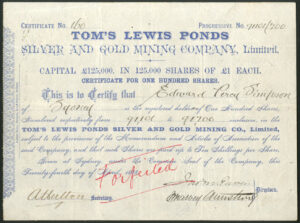 CERTIFICATE No. 160 PROGRESSIVE No. 91101/200
TOM'S LEWIS PONDS
SILVER AND GOLD MINING COMPANY, Limited.
CAPITAL £125,000, IN 125,000 SHARES OF £1 EACH.
CERTIFICATE FOR ONE HUNDRED SHARES.
This is to Certify that Edward Percy Simpson
of Sydney is the registered holder of One Hundred Shares,
Numbered respectively from 91101 to 91200 inclusive, in the
TOM'S LEWIS PONDS SILVER AND GOLD MINING CO., Limited,
subject to the provisions of the Memorandum and Articles of Association of the
said Company, and that such Shares are paid up to Ten Shillings per Share.
Given at Sydney, under the Common Seal of the Company, this
Twenty-fourth day of
Forfeited
Secretary.
Directors.